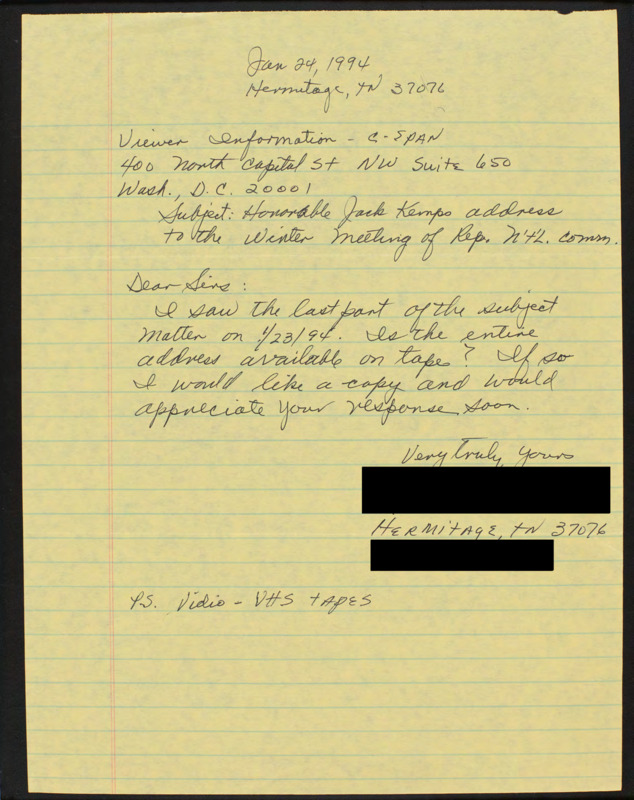 Jan 24, 1994
Hermitage, TN 37076
Viewer Information - C-SPAN
400 North Capital St NW Suite 650
Wash., D.C. 20001
Subject: Honorable Jack Kemps address
to the Winter Meeting of Rep. N'tL. comm.
Dear Sirs:
I saw the last part of the subject
matter on 1/23/94. Is the entire
address available on tape? If so
I would like a copy and would
appreciate your response soon.
Very truly yours
HERMITAGE, TN 37076
P.S. Vidio - VHS TAPES